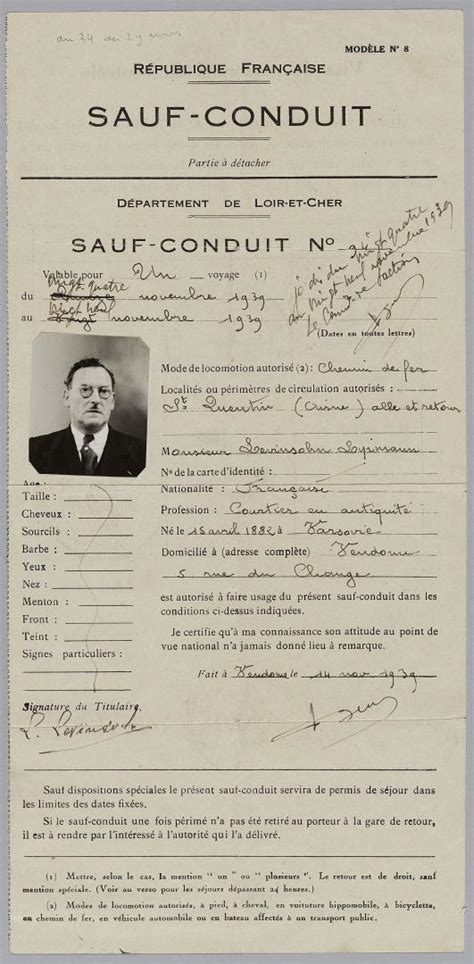 du 24 au 29 nov.
MODÈLE N° 8
RÉPUBLIQUE FRANÇAISE
SAUF-CONDUIT
Partie à détacher
DÉPARTEMENT DE LOIR-ET-CHER
SAUF-CONDUIT N° 94
Je dis du vingt quatre
au vingt neuf novembre 1939
Valable pour Un voyage (1)
vingt quatre
du novembre 1939
vingt neuf
au vingt novembre 1939
(Dates en toutes lettres)
Mode de locomotion autorisé (2) : Chemin de fer
Localités ou périmètres de circulation autorisés :
St Quentin (Aisne) alle et retour
Monsieur Levinsohn Lypmann
N° de la carte d'identité :
Nationalité : Française
Profession : Courtier en antiquité
Né le 15 avril 1882 à Varsovie
Domicilié à (adresse complète) Vendome
5 rue du Change
est autorisé à faire usage du présent sauf-conduit dans les
conditions ci-dessus indiquées.
Je certifie qu'à ma connaissance son attitude au point de
vue national n'a jamais donné lieu à remarque.
Fait à Vendome le 14 nov 1939
Age :
Taille :
Cheveux :
Sourcils :
Barbe :
Yeux :
Nez :
Menton :
Front :
Teint :
Signes particuliers :
Signature du Titulaire,
L. Levinsohn
Sauf dispositions spéciales le présent sauf-conduit servira de permis de séjour dans
les limites des dates fixées.
Si le sauf-conduit une fois périmé n'a pas été retiré au porteur à la gare de retour,
il est à rendre par l'intéressé à l'autorité qui l'a délivré.
(1) Mettre, selon le cas, la mention " un " ou " plusieurs ". Le retour est de droit, sauf
mention spéciale. (Voir au verso pour les séjours dépassant 24 heures.)
(2) Modes de locomotion autorisés, à pied, à cheval, en voiture hippomobile, à bicyclette,
en chemin de fer, en véhicule automobile ou en bateau affectés à un transport public.